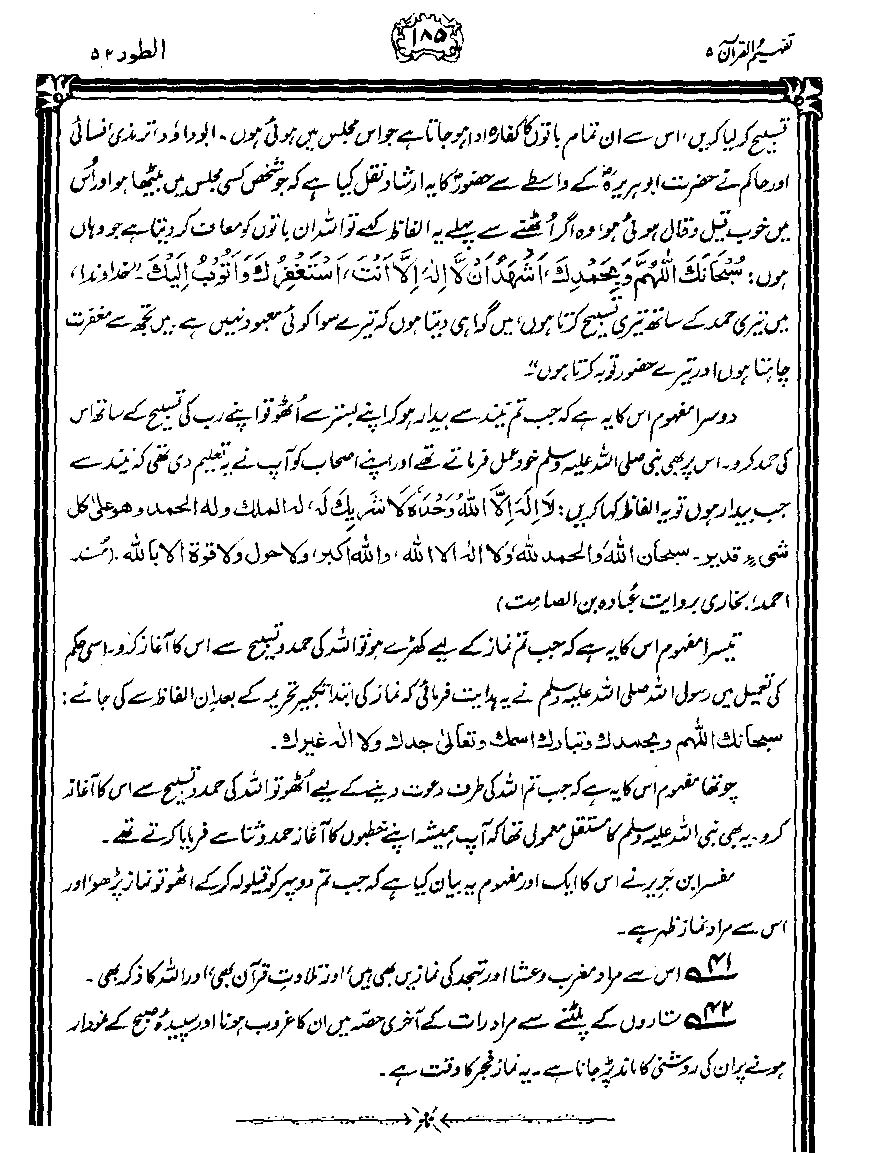 تفہیم القرآن ۵
۱۸۵
الطور ۵۲
تسبیح کر لیا کریں، اس سے ان تمام باتوں کا کفارہ ادا ہو جاتا ہے جو اس مجلس میں ہوئی ہوں۔ ابوداؤد، ترمذی، نسائی
اور حاکم نے حضرت ابوہریرہؓ کے واسطے سے حضورؐ کا یہ ارشاد نقل کیا ہے کہ جو شخص کسی مجلس میں بیٹھا ہو اور اُس
میں خوب قیل و قال ہوئی ہو، وہ اگر اُٹھنے سے پہلے یہ الفاظ کہے تو اللہ ان باتوں کو معاف کر دیتا ہے جو وہاں
ہوں: سُبْحَانَكَ اللّٰهُمَّ وَبِحَمْدِكَ، اَشْهَدُ اَنْ لَّا اِلٰهَ اِلَّا اَنْتَ، اَسْتَغْفِرُكَ وَاَتُوْبُ اِلَيْكَ۔ "خداوندا،
میں تیری حمد کے ساتھ تیری تسبیح کرتا ہوں، میں گواہی دیتا ہوں کہ تیرے سوا کوئی معبود نہیں ہے، میں تجھ سے مغفرت
چاہتا ہوں اور تیرے حضور توبہ کرتا ہوں"۔
دوسرا مفہوم اس کا یہ ہے کہ جب تم نیند سے بیدار ہو کر اپنے بستر سے اُٹھو تو اپنے رب کی تسبیح کے ساتھ اس
کی حمد کرو۔ اس پر بھی نبی صلی اللہ علیہ وسلم خود عمل فرماتے تھے اور اپنے اصحاب کو آپ نے یہ تعلیم دی تھی کہ نیند سے
جب بیدار ہوں تو یہ الفاظ کہا کریں: لَا اِلٰهَ اِلَّا اللّٰهُ وَحْدَهٗ لَا شَرِيْكَ لَهٗ، له الملك وله الحمد وهو على كل
شىءٍ قدير۔ سبحان الله والحمد لله ولا اله الا الله، والله اكبر، ولا حول ولا قوة الا بالله۔ (مُسند
احمد، بخاری بروایت عُبادہ بن الصامت)
تیسرا مفہوم اس کا یہ ہے کہ جب تم نماز کے لیے کھڑے ہو تو اللہ کی حمد و تسبیح سے اس کا آغاز کرو۔ اسی حکم
کی تعمیل میں رسول اللہ صلی اللہ علیہ وسلم نے یہ ہدایت فرمائی کہ نماز کی ابتدا تکبیر تحریمہ کے بعد ان الفاظ سے کی جائے:
سبحانك اللهم وبحمدك وتبارك اسمك وتعالى جدك ولا اله غيرك۔
چوتھا مفہوم اس کا یہ ہے کہ جب تم اللہ کی طرف دعوت دینے کے لیے اُٹھو تو اللہ کی حمد و تسبیح سے اس کا آغاز
کرو۔ یہ بھی نبی اللہ علیہ وسلم کا مستقل معمول تھا کہ آپ ہمیشہ اپنے خطبوں کا آغاز حمد و ثنا سے فرمایا کرتے تھے۔
مفسر ابن جَریر نے اس کا ایک اور مفہوم یہ بیان کیا ہے کہ جب تم دوپہر کو قیلولہ کر کے اٹھو تو نماز پڑھو، اور
اس سے مراد نماز ظہر ہے۔
۴۱ اس سے مراد مغرب و عشا اور تہجد کی نمازیں بھی ہیں، اور تلاوتِ قرآن بھی، اور اللہ کا ذکر بھی۔
۴۲ تاروں کے پلٹنے سے مراد رات کے آخری حصہ میں ان کا غروب ہونا اور سپیدۂ صبح کے نمودار
ہونے پر ان کی روشنی کا ماند پڑ جانا ہے۔ یہ نماز فجر کا وقت ہے۔